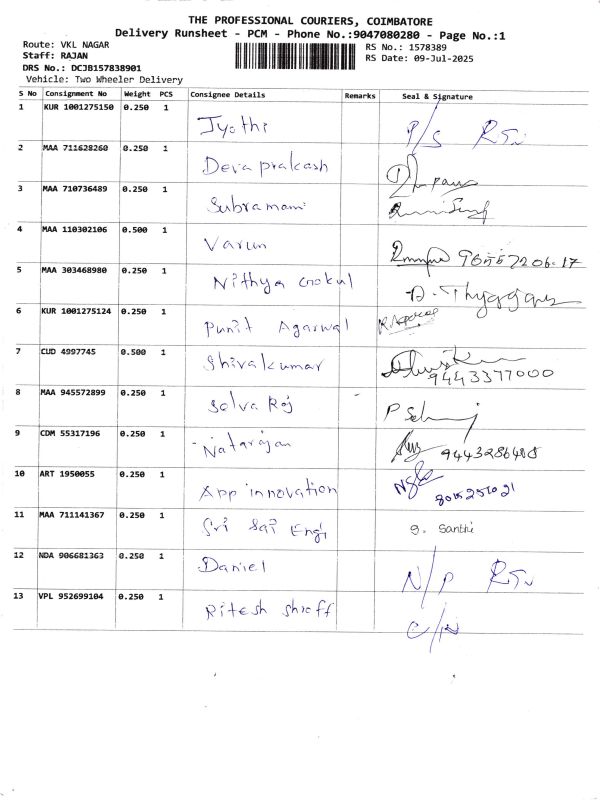 THE PROFESSIONAL COURIERS, COIMBATORE
Delivery Runsheet - PCM - Phone No.:9047080280 - Page No.:1
Route: VKL NAGAR
Staff: RAJAN
DRS No.: DCJB157838901
Vehicle: Two Wheeler Delivery
RS No.: 1578389
RS Date: 09-Jul-2025
S No Consignment No Weight PCS Consignee Details Remarks Seal & Signature
1 KUR 1001275150 0.250 1 Jyothi P/S RTn
2 MAA 711628260 0.250 1 Deva prakash
3 MAA 710736489 0.250 1 Subramani
4 MAA 110302106 0.500 1 Varun
5 MAA 303468980 0.250 1 Nithya Gokul
6 KUR 1001275124 0.250 1 Punit Agarwal
7 CUD 4997745 0.500 1 Shivakumar 9443377000
8 MAA 945572899 0.250 1 Selva Raj
9 CDM 55317196 0.250 1 Natarajan
10 ART 1950055 0.250 1 App innovation
11 MAA 711141367 0.250 1 Sri Sai Engi g. Santhi
12 NDA 906681363 0.250 1 Daniel N/P RTn
13 VPL 952699104 0.250 1 Ritesh Shroff